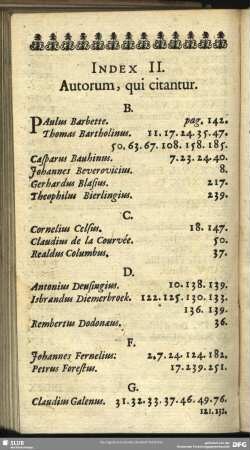 INDEX II.
Autorum, qui citantur.
B.
PAulus Barbette. pag. 142.
Thomas Bartholinus. 11.17.24.35.47.
50.63.67.108.158.185.
Casparus Bauhinus. 7.23.24.40.
Johannes Beverovicius. 8.
Gerhardus Blasius. 217.
Theophilus Bierlingius. 239.
C.
Cornelius Celsus. 18.147.
Claudius de la Courvée. 50.
Realdus Columbus. 37.
D.
Antonius Deusingius. 10.138.139.
Isbrandus Diemerbroek. 122.125.130.133.
136.139.
Rembertus Dodonæus. 36.
F.
Johannes Fernelius. 2,7.24.124.182.
Petrus Forestus. 17.239.251.
G.
Claudius Galenus. 31.32.33.37.46.49.76.
121.132.
SLUB